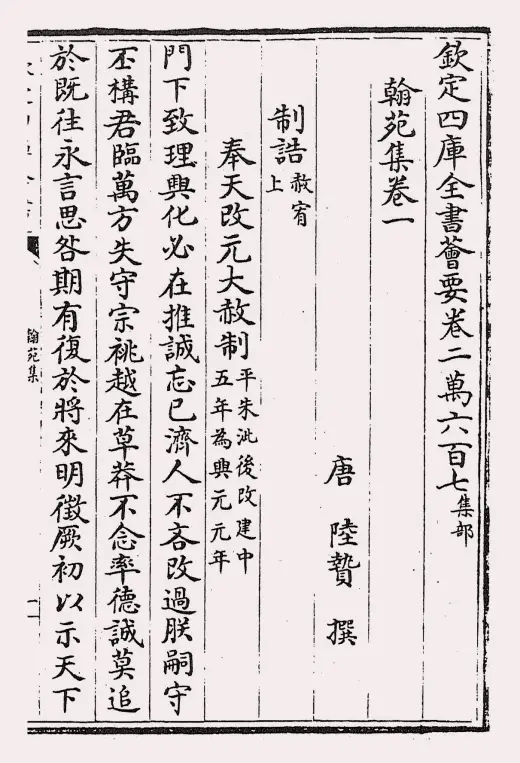 欽定四庫全書薈要卷二萬六百七集部
翰苑集卷一
唐 陸贄 撰
制誥赦宥上
奉天改元大赦制平朱泚後改建中五年為興元元年
門下致理興化必在推誠忘已濟人不吝改過朕嗣守
丕構君臨萬方失守宗祧越在草莽不念率德誠莫追
於既往永言思咎期有復於將來明徵厥初以示天下
翰苑集
一